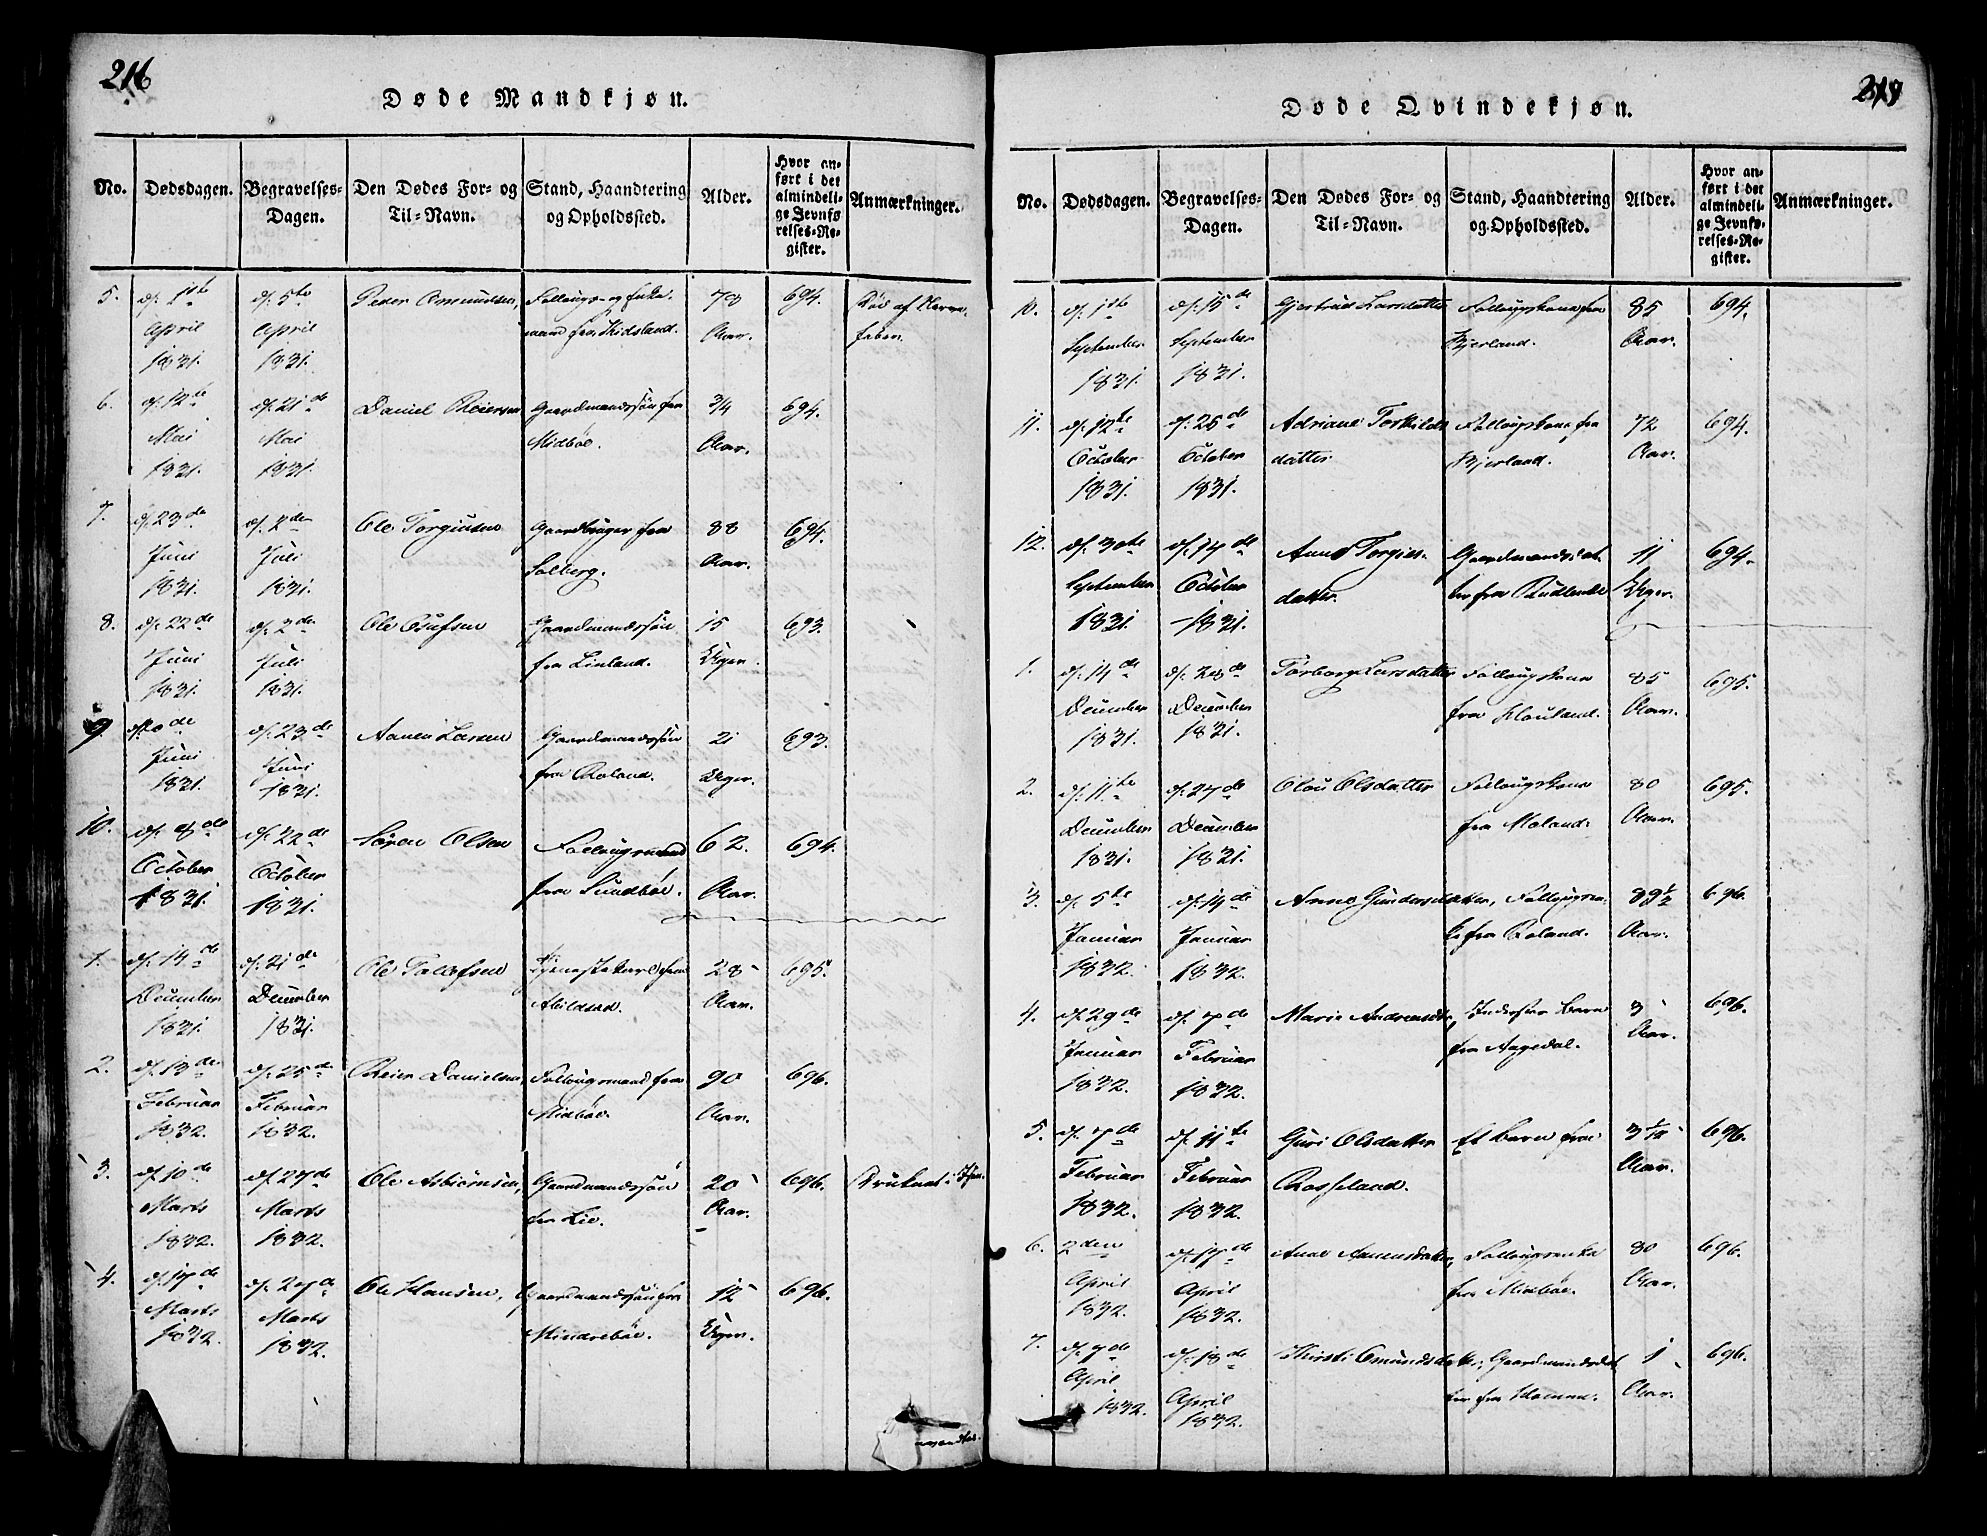 216
Døde Mandkjøn.
No. Dødsdagen. Begravelses-Dagen. Den Dødes For- og Til-Navn. Stand, Haandtering og Opholdssted. Alder. Hvor anført i det almindelige Jevnførelses-Register. Anmærkninger.
5. d. 1ste d. 5te Peder Omundsen, 73 694. Død af Nerve-
April April mand fra Aar. feber.
1831. 1831.
6. d. 12te d. 21de Daniel Reiersen Gaardmandssøn fra 3/4 694.
Mai Mai Midbøe. Aar.
1831. 1831.
7. d. 23de d. 2den Ole Torgiusen Gaardbruger fra 88 694.
Juni Juli Solberg. Aar.
1831. 1831.
8. d. 22de d. 2den Ole Gaardmandssøn 15 693.
Juni Juli fra Linland. Uger.
1831. 1831.
9. d. 23de Aanen Larsen Gaardmandssøn 21 693.
Juni Juni fra Roland. Uger.
1831. 1831.
10. d. 22de Søren Olsen Follougsmand 62. 694.
October October fra Sundbøe. Aar.
1831. 1831.
1. d. 14de d. 21de Ole Tallefsen Tjenestekarl fra 28 695.
December December Abildsnd. Aar.
1831. 1831.
2. d. 13de d. 25de Reier Danielsen, Follougsmand fra 90 696.
Februar Februar Midbøe. Aar.
1832. 1832.
3. d. 10de d. 27de Ole Asbiørnsen, Gaardmandssøn 20 696. Druknet i
Marts Marts fra Lie. Aar.
1832. 1832.
4. d. 17de d. 27de Ole Hansen, Gaardmandssøn fra 12 696.
Marts Marts Mindrebøe. Uger.
1832. 1832.
Døde Qvindekjøn.
No. Dødsdagen. Begravelses-Dagen. Den Dødes For- og Til-Navn. Stand, Haandtering og Opholdssted. Alder. Hvor anført i det almindelige Jevnførelses-Register. Anmærkninger.
10. d. 1ste d. 15de Gjertrud Larsdatter Follougskone fra 85 694.
September September Bjerland. Aar.
1831. 1831.
11. d. 12te d. 26de Adriane Torkilds Follougskone fra 72 694.
October October datter Bjerland. Aar.
1831. 1831.
12. d. 30te d. 14de Anne Torgius- Gaardmandsdat- 11 694.
September October datter. ter fra Uger.
1831. 1831.
1. d. 14de d. 28de Torborg Larsdatter Follougskone 85 695.
December December fra Houland. Aar.
1831. 1831.
2. d. 11te d. 27de Olou Olsdatter Follougskone 80 695.
December December fra Moland. Aar.
1831. 1831.
3. d. 5te d. 14de Anne Gundersdatter, Follougsen- 89 1/2 696.
Januar Januar ke fra Roland. Aar.
1832. 1832.
4. d. 29de d. 7de Marie Andreasdtr, Inderster Barn 3 696.
Januar Februar fra Aagedal. Aar.
1832. 1832.
5. d. 7de d. 11te Guri Olsdatter Et Barn fra 696.
Februar Februar Rosseland. Aar.
1832. 1832.
6. 2den d. 17de Anne Aanensdatter, Follougsenke 80 696.
April April fra Midbøe. Aar.
1832. 1832.
7. d. 7de d. 18de Kirsti Omundsdatter, Gaardmandsdat 1 696.
April April ter fra Aar.
1832. 1832.